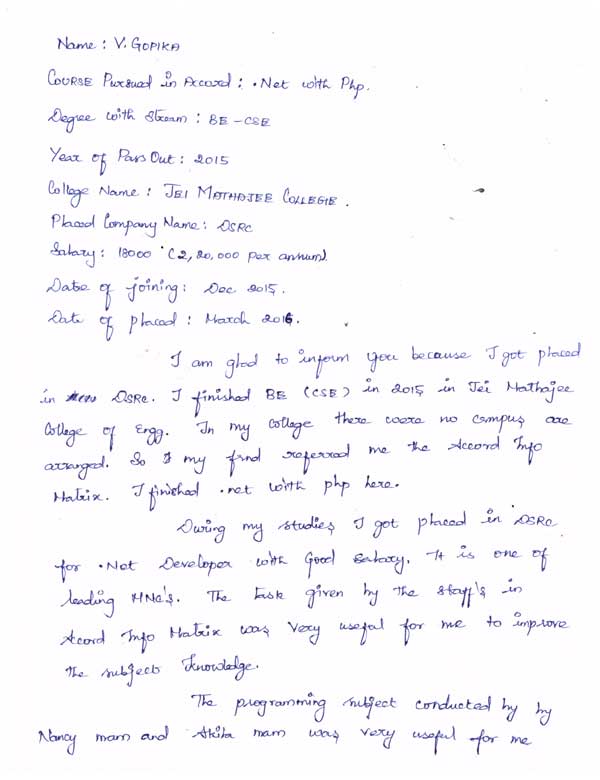 Name : V. GOPIKA
COURSE Pursued in Accord : .Net with Php.
Degree with Stream : BE - CSE
Year of Pass Out : 2015
College Name : JEI MATHAJEE COLLEGE.
Placed Company Name : DSRC
Salary : 18000 (2,20,000 per annum)
Date of joining : Dec 2015.
Date of placed : March 2016.
I am glad to inform you because I got placed
in DSRC. I finished BE (CSE) in 2015 in Jei Mathajee
College of Engg. In my college there were no campus are
arranged. So I my frnd referred me the Accord Info
Matrix. I finished .net with php here.
During my studies I got placed in DSRC
for .Net Developer with Good Salary. It is one of
leading MNC's. The task given by the staff's in
Accord Info Matrix was very useful for me to improve
the subject knowledge.
The programming subject conducted by by
Nancy mam and Akila mam was very useful for me